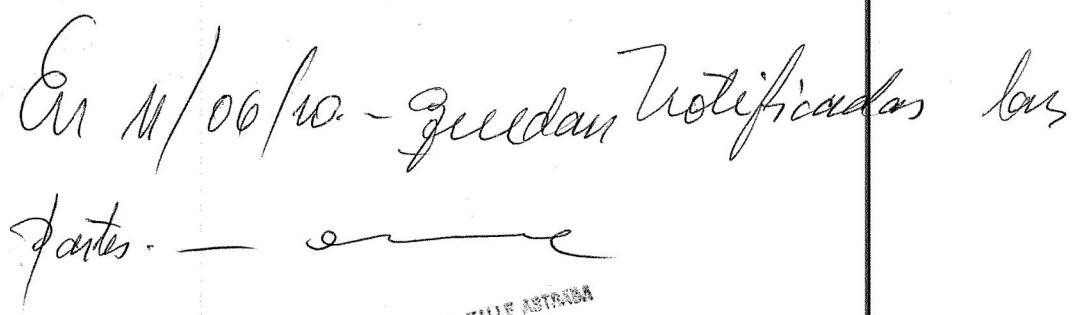 En 11/06/10.- Quedan Notificadas las
partes. —
ASTRADA